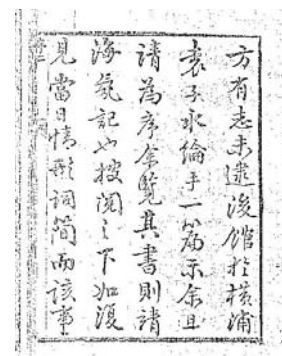 方有志未逮後館於橫浦
袁子永倫手一篇示余且
請為序余覽其書則靖
海氛記也披閱之下如復
見當日情形詞簡而該事